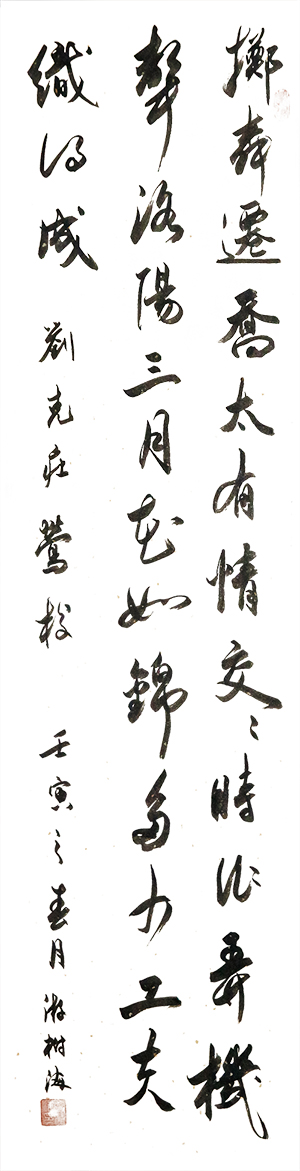 擲遷喬太有情交〻時作弄機
聲洛陽三月花如錦多少工夫
織得成 劉克莊鶯梭 壬寅之春月 游樹海